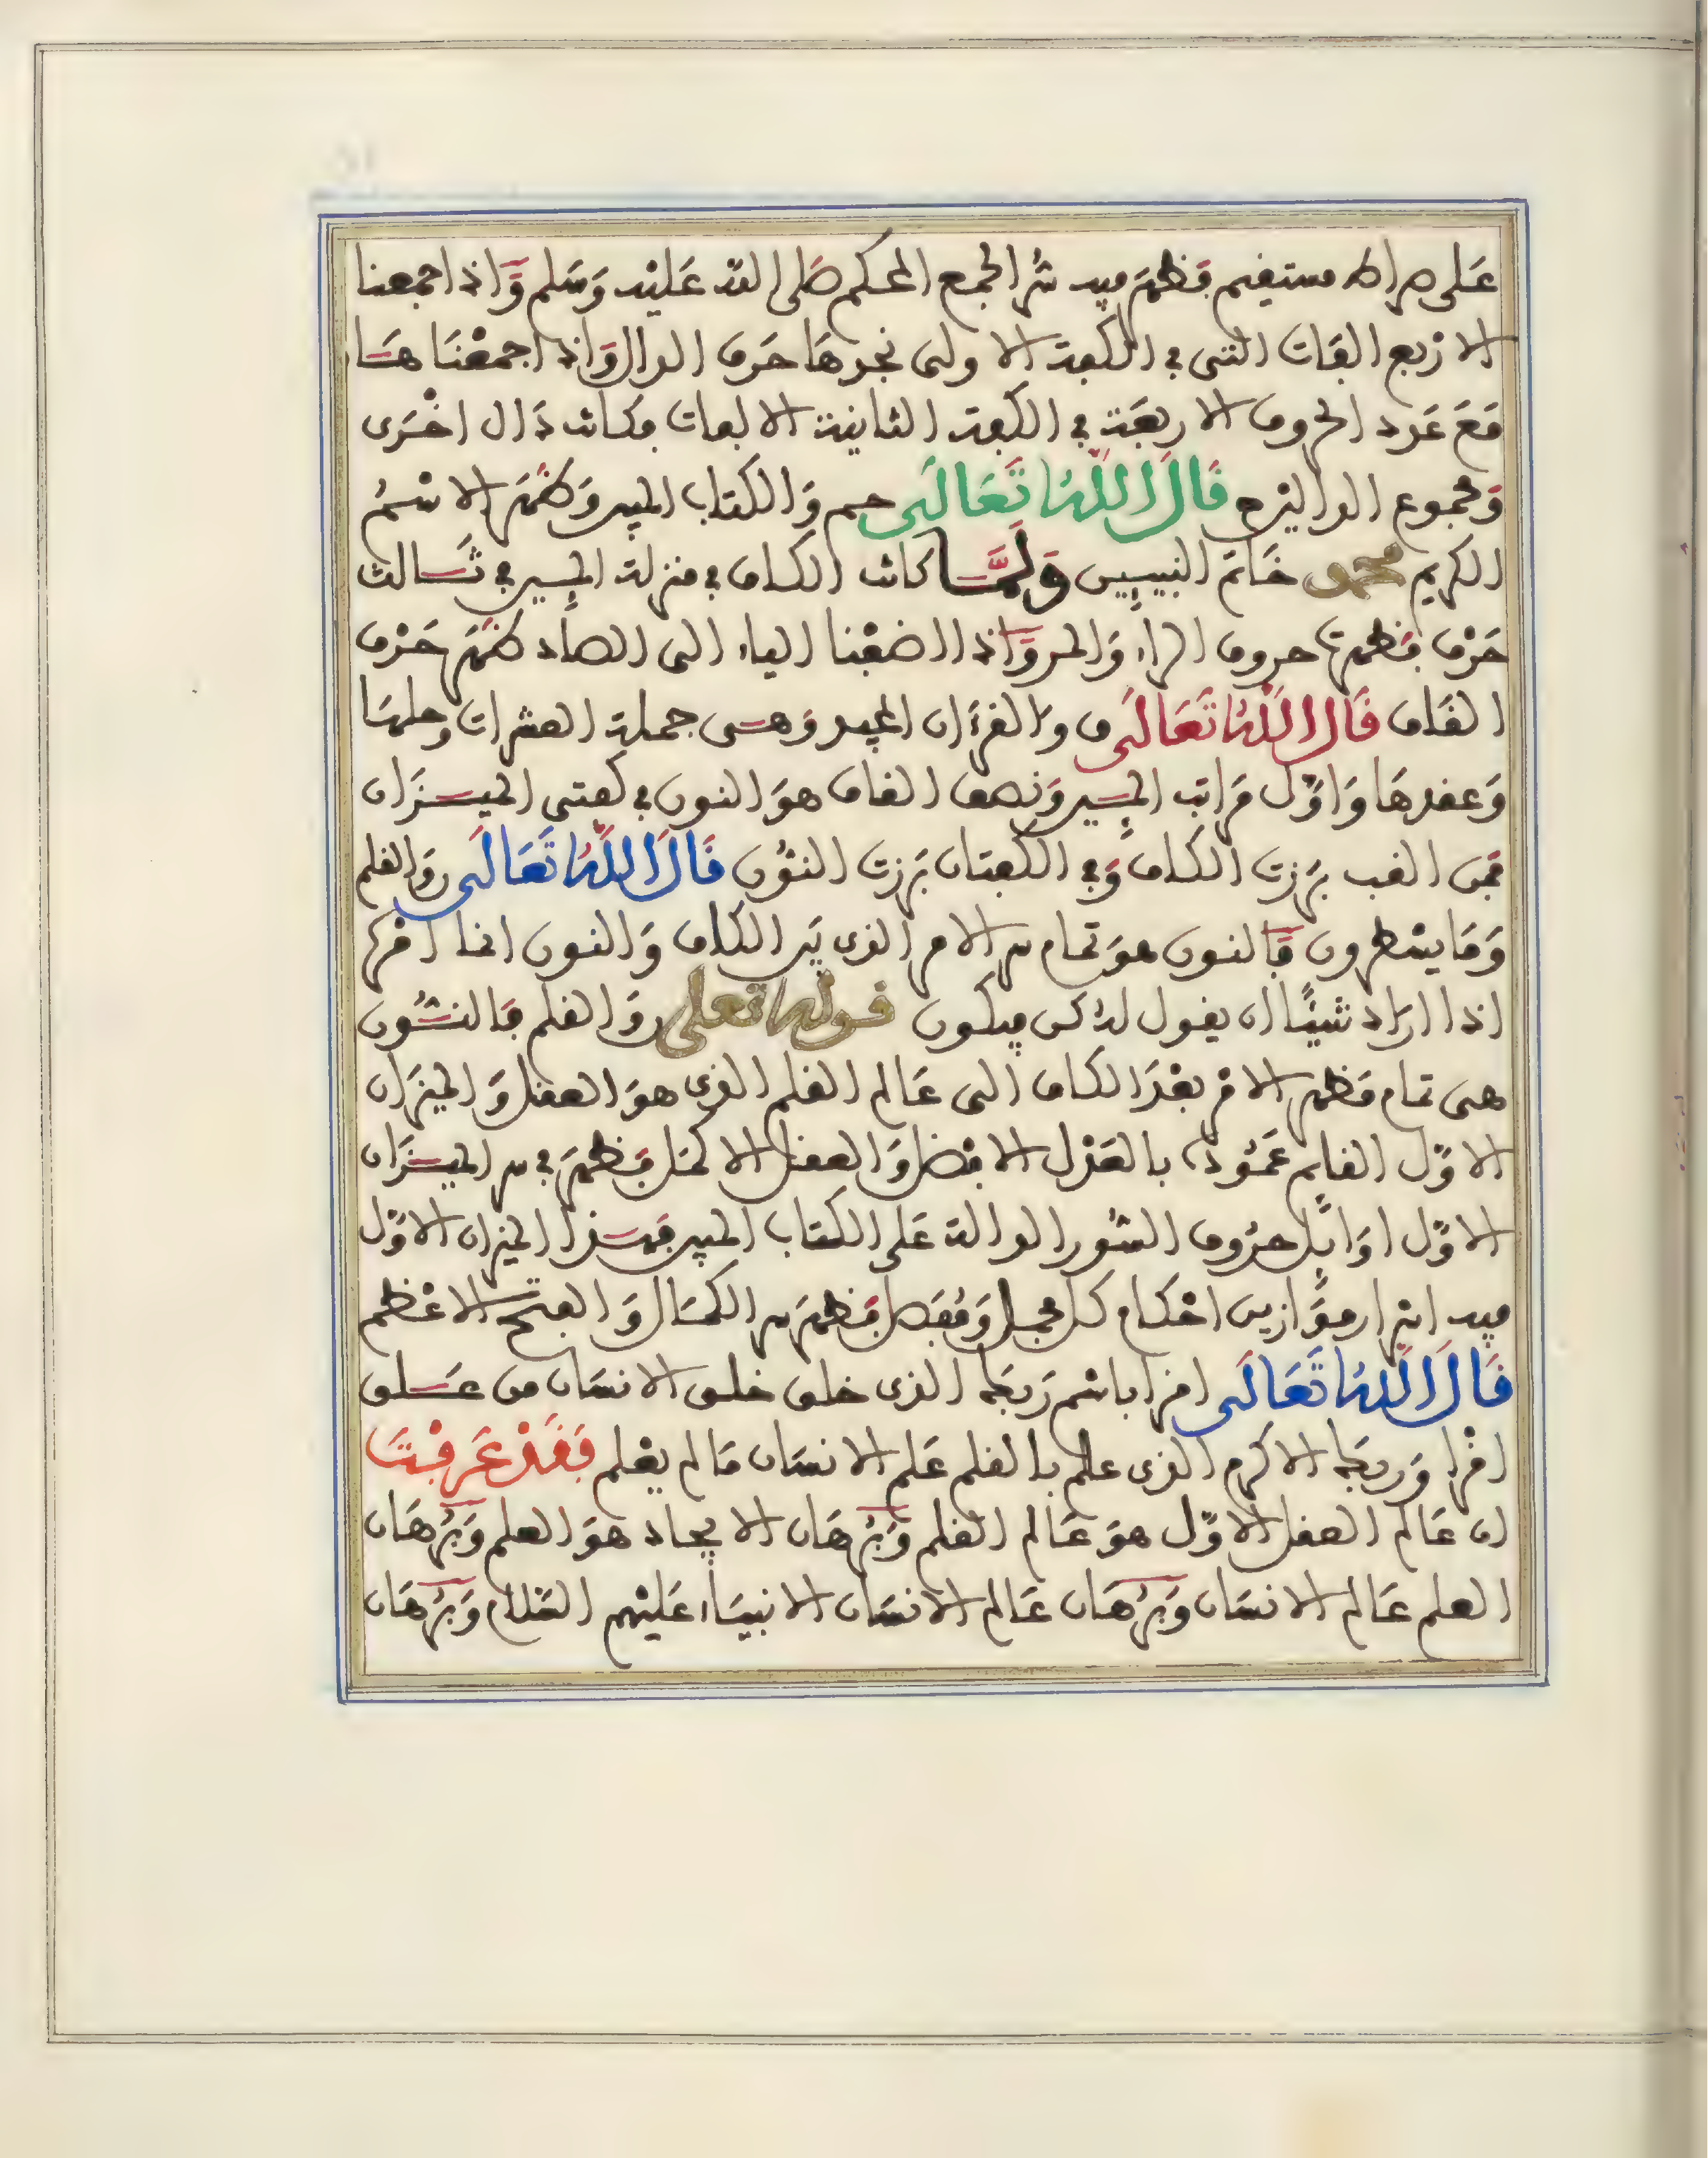 على صراط مستقيم فظهر فيه سر الجمع المحكم صلى الله عليه وسلم واذا جمعنا
الاربع الفات التي في الكفة الاولى نجدها حرف الدال واذا جمعنا هـا
مع عدد الحروف الاربعة في الكفة الثانية الالفات فكانت دال اخرى
ومجموع الدالين ح قال الله تعالى حم والكتاب المبين وظهر الاسم
الكريم محمد خاتم النبيين ولما كانت الكاف في منزلة الميم في ثالث
حرف فظهرت حروف الراء والمر واذا اضفنا الياء الى الصاد ظهر حرف
القاف قال الله تعالى ق والقرءان المجيد وهي جملة العشرات وحلها
وعقدها واول مراتب الميين ونصف القاف هو النون في كفتي الميزان
فمن القب برزت الكاف وفي الكفتان برزت النون قال الله تعالى ن والقلم
وما يسطرون فالنون هو تمام سر الامر الذي بين الكاف والنون انما امره
اذا اراد شيئا ان يقول له كن فيكون قوله تعلى ن والقلم فالنون
هي تمام فظهر الامر بعد الكاف الى عالم القلم الذي هو العقل والميزان
الاول القايم عموده بالعدل الافضل والعقل الاكمل فظهر في سر الميزان
الاول اوايل حروف السور الدالة على الكتاب المبين فهذا الميزان الاول
فيه اسرار موازين احكام كل مجمل ومفصل فظهر سر الكمال والفتح الاعظم
قال الله تعالى اقرا باسم ربك الذي خلق خلق الانسان من علق
اقرا وربك الاكرم الذي علم بالقلم علم الانسان ما لم يعلم فقد عرفت
ان عالم العقل الاول هو عالم القلم وبرهان الايجاد هو العلم وبرهان
العلم عالم الانسان وبرهان عالم الانسان الانبياء عليهم السلام وبرهان